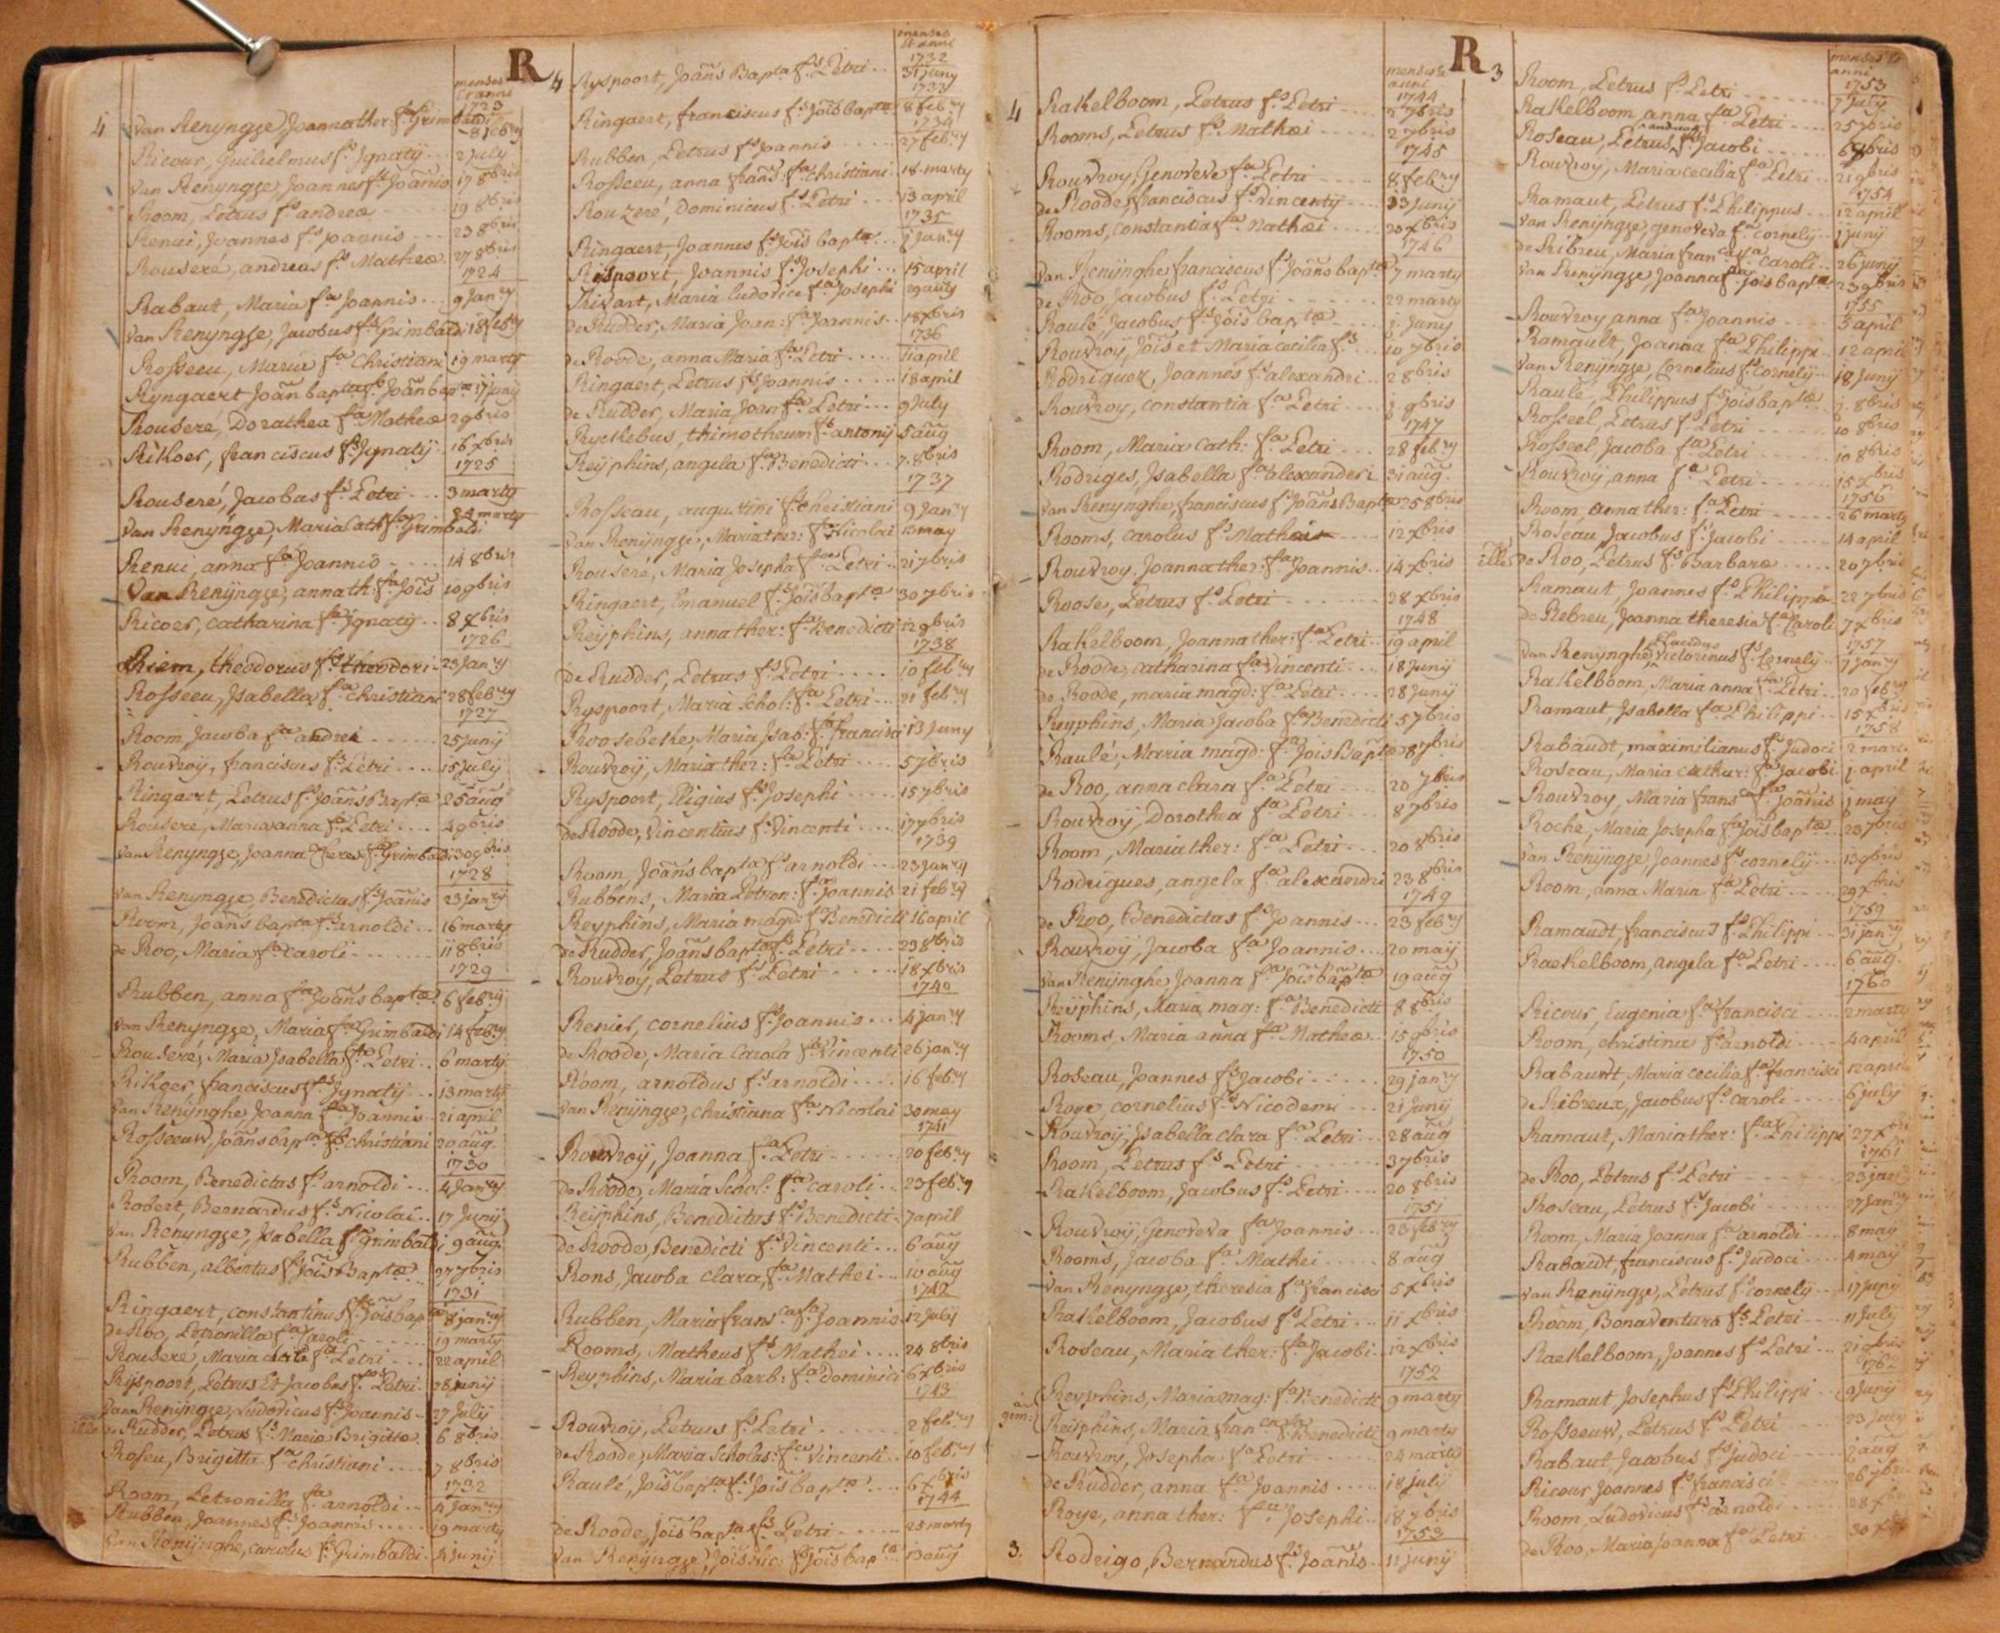 R
menses et anni
1723
4
van Renyngge, Joanna ther: fa Grimbaldi
8 febry
Ricour, Guilielmus fs Jgnatij ... 2 July
van Renyngge, Joannes fs Joannis 17 8bris
Room, Petrus fs andreæ ... 19 8bris
Renui, Joannes fs Joannis ... 23 8bris
Rouseré, andreas fs Mathæe 27 8bris
1724
Rabaut, Maria fa Joannis ... 9 Janry
van Renyngge, Jacobus fs Grimbaldi 18 febry
Rosseeu, Maria fa Christiani 19 marty
Ryngaert Joañ baptã fs Joañ bapta 17 junij
Rouseré, Dorathea fa Matheæ 2 9bris
Rikoer, franciscus fs Jgnatij 16 xbris
1725
Rouseré, Jacobus fs Petri ... 3 marty
van Renyngge, Maria Cath: fa Grimbaldi 24 marty
Renui, anna fa Joannis ... 14 8bris
Van Renyngge, anna th: fa Jois 10 9bris
Ricoer, catharina fa Jgnatij .. 8 xbris
1726
Riem, theodorus fs theodori 23 Janry
Rosseeu, Jsabella fa christiani 28 febry
1727
Room, Jacoba fa andrei ... 25 junij
Rouvroy, franciscus fs Petri ... 15 July
Ringaert, Petrus fs Joañs Baptæ 25 aug
Rouseré, Maria anna fa Petri ... 4 9bris
van Renyngge, Joanna theres fa Grimbaldi 30 9bris
1728
van Renyngge, Benedictus fs Joañis 23 janry
Room, Joañs bapta fs arnoldi ... 16 marty
de Roo, Maria fa caroli ... 11 8bris
1729
Rubben, anna fa Joañs baptæ 6 febry
van Renyngge, Maria fa Grimbaldi 14 febry
Rouseré, Maria Jsabella fa Petri .. 6 marty
Rikoer franciscus fs Jgnatij .. 13 marty
van Renynghe, Joanna fa Joannis .. 21 april
Rosseeuw, Joañs bapta fs christiani 20 aug.
1730
Room, Benedictus fs arnoldi ... 4 Janry
Robert, Bernardus fs Nicolai .. 17 Junij
van Renyngge, Jsabella fa Grimbaldi 9 aug.
Rubben, albertus fs Jois Baptæ 27 7bris
1731
Ringaert, constantinus fs Jois bapta 8 janry
de Roo, Petronilla fa Caroli ... 19 marty
Rouseré, Maria fa Petri ... 22 april
Ryspoort, Petrus Et Jacobus fs Petri 28 junij
van Renyngge, Ludovicus fs Joannis 27 July
de Rudder, Petrus fs Maria Brigitta 6 8bris
Roseu, Brigitta fa christiani ... 7 8bris
1732
Room, Petronilla fa arnoldi ... 4 Janry
Rubben, Joannes fs Joannis ... 19 marty
van Renynghe, carolus fs Grimbaldi 4 junij
menses et anni
1732
4
Ryspoort, Joañs Bapta fs Petri ... 3 Juny
1733
Ringaert, franciscus fs Jois baptæ 8 febry
1734
Rubben, Petrus fs Joannis ... 27 febry
Rosseeu, anna frans: fa christiani 18 marty
Rouzeré, Dominicus fs Petri ... 13 april
1735
Ringaert, Joannes fs Jois baptæ .. j Janry
Rijspoort Joannis fs Josephi ... 15 april
Rivart, Maria ludovica fa Josephi 29 aug
de Rudder, Maria Joan: fa Joannis .. 18 xbris
1736
de Roode, anna Maria fa Petri ... 11 april
Ringaert, Petrus fs Joannis ... 18 april
de Rudder, Maria Joan fa Petri ... 9 July
Ryckebus, thimotheum fs antonij 5 aug
Reyphins, angela fa Benedicti ... 7 8bris
1737
Rosseau, augustini fs christiani 9 Janry
van Renyngge, Maria ther: fa Nicolai 13 may
Rouseré, Maria Josepha fa Petri .. 21 7bris
Ringaert, Emanuel fs Jois bapta 30 7bris
Reyphins, anna ther: fa Benedicti 12 9bris
1738
de Rudder, Petrus fs Petri ... 10 febry
Ryspoort, Maria Schol: fa Petri ... 21 febry
Roosebeke, Maria Jsab: fa francisci 13 Juny
Rouvroy, Maria ther: fa Petri ... 5 7bris
Ryspoort, Eligius fs Josephi ... 15 7bris
de Roode, Vincentius fs Vincenti ... 17 7bris
1739
Room Joañs bapta fs arnoldi ... 23 Janry
Rubbens, Maria Petron: fa Joannis 21 febry
Reyphins, Maria magd fa Benedicti 16 april
de Rudder, Joañs bapta fs Petri ... 29 8bris
Rouvroy, Petrus fs Petri ... 18 xbris
1740
Reniel, cornelius fs Joannis ... 4 Janry
de Roode, Maria Carola fa Vincenti 26 janry
Room, arnoldus fs arnoldi ... 16 febry
van Renyngge, christiana fa Nicolai 30 may
1741
Rouvroy, Joanna fa Petri ... 20 febry
de Roode, Maria Scol: fa caroli ... 23 febry
Reyphins, Benedictus fs Benedicti .. 7 april
de Roode, Benedicti fs Vincenti ... 6 aug
Rons, Jacoba Clara, fa Mathei ... 10 aug
1742
Rubben, Maria fransca fa Joannis 12 July
Rooms, Matheus fs Mathei ... 24 8bris
Reyphins, Maria barb: fa dominici 6 xbris
1743
Rouvroy, Petrus fs Petri ... 2 febry
de Roode, Maria Scholas: fa Vincenti .. 10 febry
Raulé, Jois bapta fs Jois baptæ ... 6 xbris
1744
de Roode, Jois bapta fs Petri ... 25 marty
van Renyngge, Jois nic: fs Jois bapta 13 aug
R
menses et anni
1744
4
Rakelboom, Petrus fs Petri ... 2 7bris
Rooms, Petrus fs Mathæi ... 2 7bris
1745
Rouvroy, Genoveve fa Petri ... 8 febry
de Roode, franciscus fs Vincenty ... 23 Junij
Rooms, constantia fa Mathæi ... 20 xbris
1746
van Renynghe franciscus fs Joañs bapta 7 marty
de Roo Jacobus fs Petri ... 22 marty
Raulé Jacobus fs Jois baptæ ... j. Juny
Rouvroij, Jois et Maria cæcilia fs .. 10 7bris
Rodriguez, Joannes fs alexandri ... 2 8bris
Rouvroy, constantia fa Petri ... j 9bris
1747
Room, Maria Cath: fa Petri ... 28 febry
Rodriges, Jsabella fa alexanderi 31 aug.
van Renynghe, franciscus fs Joañs Baptæ 25 8bris
Rooms, carolus fs Mathæi ... 12 xbris
Rouvroy, Joanna the: fa Joannis .. 14 xbris
Roose, Petrus fs Petri ... 28 xbris
1748
Rakelboom, Joanna ther: fa Petri .. 19 april
de Roode, catharina fa Vincenti ... 18 Junij
de Roode, maria magd: fa Petri ... 28 Junij
Reyphins, Maria Jacoba fa Benedicti 5 7bris
Raulé, Maria magd: fa Jois Baptæ 8 7bris
de Roo, anna clara fa Petri ... 20 7bris
Rouvroij, Dorothea fa Petri ... 8 7bris
Room, Maria ther: fa Petri ... 20 8bris
Rodrigues, angela fa alexandri 23 8bris
1749
de Roo, Benedictus fs Joannis ... 23 febry
Rouvroij, Jacoba fa Joannis ... 20 may
van Renynghe Joanna fa Jois bapta 19 aug
Reyphins, Maria mag: fa Benedicti 8 8bris
Rooms, Maria anna fa Matheæ .. 15 9bris
1750
Roseau, Joannes fs Jacobi ... 29 janry
Roye, cornelius fs Nicodemi ... 21 Junij
Rouvroij, Jsabella clara fa Petri ... 28 aug
Room, Petrus fs Petri ... 3 7bris
Rakelboom, Jacobus fs Petri ... 20 8bris
1751
Rouvroij, Genoveva fa Joannis .. 23 febry
Rooms, Jacoba fa Mathei ... 8 aug
van Renyngge, theresia fa francisci 5 xbris
Rakelboom, Jacobus fs Petri ... 11 xbris
Roseau, Maria ther: fa Jacobi .. 12 xbris
1752
Reyphins, Maria mag: fa Benedicti 9 marty
Reyphins, Maria fransca fa Benedicti 9 marty
Rouvroy, Josepha fa Petri ... 24 marty
de Rudder, anna fa Joannis ... 18 July
Roye, anna ther: fa Josephi ... 18 7bris
1753
3.
Rodrigo, Bernardus fs Joañis .. 11 Junij
menses et anni
1753
3
Room, Petrus fs Petri ... 7 July
Rakelboom anna fa Petri ... 25 7bris
Roseau, Petrus fs Jacobi ... 6 8bris
Rouvroy, Maria cecilia fa Petri .. 21 9bris
1754
Ramaut, Petrus fs Philippus ... 12 april
van Renyngge, genoveva fa cornely .. j junij
de Ribreu, Maria franca fa caroli .. 26 junij
van Renyngge, Joanna fa Jois baptæ 23 9bris
1755
Rouvroy anna fa Joannis ... 3 april
Ramault, Joanna fa Philippi .. 12 april
van Renyngge, Cornelius fs cornely .. 18 Junij
Raulé, Philippus fs Jois baptæ j. 8bris
Rosseel, Petrus fs Petri ... 10 8bris
Rosseel Jacoba fa Petri ... 10 8bris
Rouvroy, anna fa Petri ... 15 xbris
1756
Room anna ther: fa Petri ... 26 marty
Roseau, Jacobus fs Jacobi ... 14 april
ille. de Roo, Petrus fs Barbaræ ... 20 7bris
Ramaut, Joannes fs Philippi 22 7bris
de Rebreu, Joanna theresia fa Caroli 7 xbris
1757
van Renynghe, Victorinus fs Cornely .. 7 janry
Rakelboom, Maria anna fa Petri .. 20 febry
Ramaut, Jsabella fa Philippi .. 15 xbris
1758
Rabaudt, maximilianus fs Judoci 2 mart
Roseau, Maria cathar: fa Jacobi j. april
Rouvroy, Maria fransca fa Joañis j may
Roche, Maria Josepha fa Jois baptæ .. 23 7bris
van Renyngge, Joannes fs cornelij ... 13 9bris
Room, anna Maria fa Petri ... 29 xbris
1759
Ramaudt, franciscus fs Philippi ... 31 janry
Raekelboom, angela fa Petri ... 6 aug.
1760
Ricour, Eugenia fa francisci ... 2 marty
Room, christina fa arnoldi ... 4 april
Rabaudt, Maria cecilia fa francisci 12 april
de Ribreux, Jacobus fs caroli ... 6 july
Ramaut, Maria ther: fa Philippi 27 xbris
1761
de Roo, Petrus fs Petri ... 23 jan
Roseau, Petrus fs Jacobi ... 27 Janry
Room, Maria Joanna fa arnoldi .. 8 may
Rabaudt, franciscus fs Judoci ... 4 may
van Renyngge, Petrus fs cornely ... 17 juny
Room, Bonaventura fs Petri ... 11 July
Raekelboom, Joannes fs Petri ... 21 9bris
1762
Ramaut Josephus fs Philippi .. 9 Junij
Rosseeuw, Petrus fs Petri ... 23 July
Rabaut Jacobus fs Judoci ... j aug
Ricour Joannes fs francisci ... 26 7bris
Room, Ludovicus fs arnoldi ... 28
de Roo, Maria Joanna fa Petri ... 30